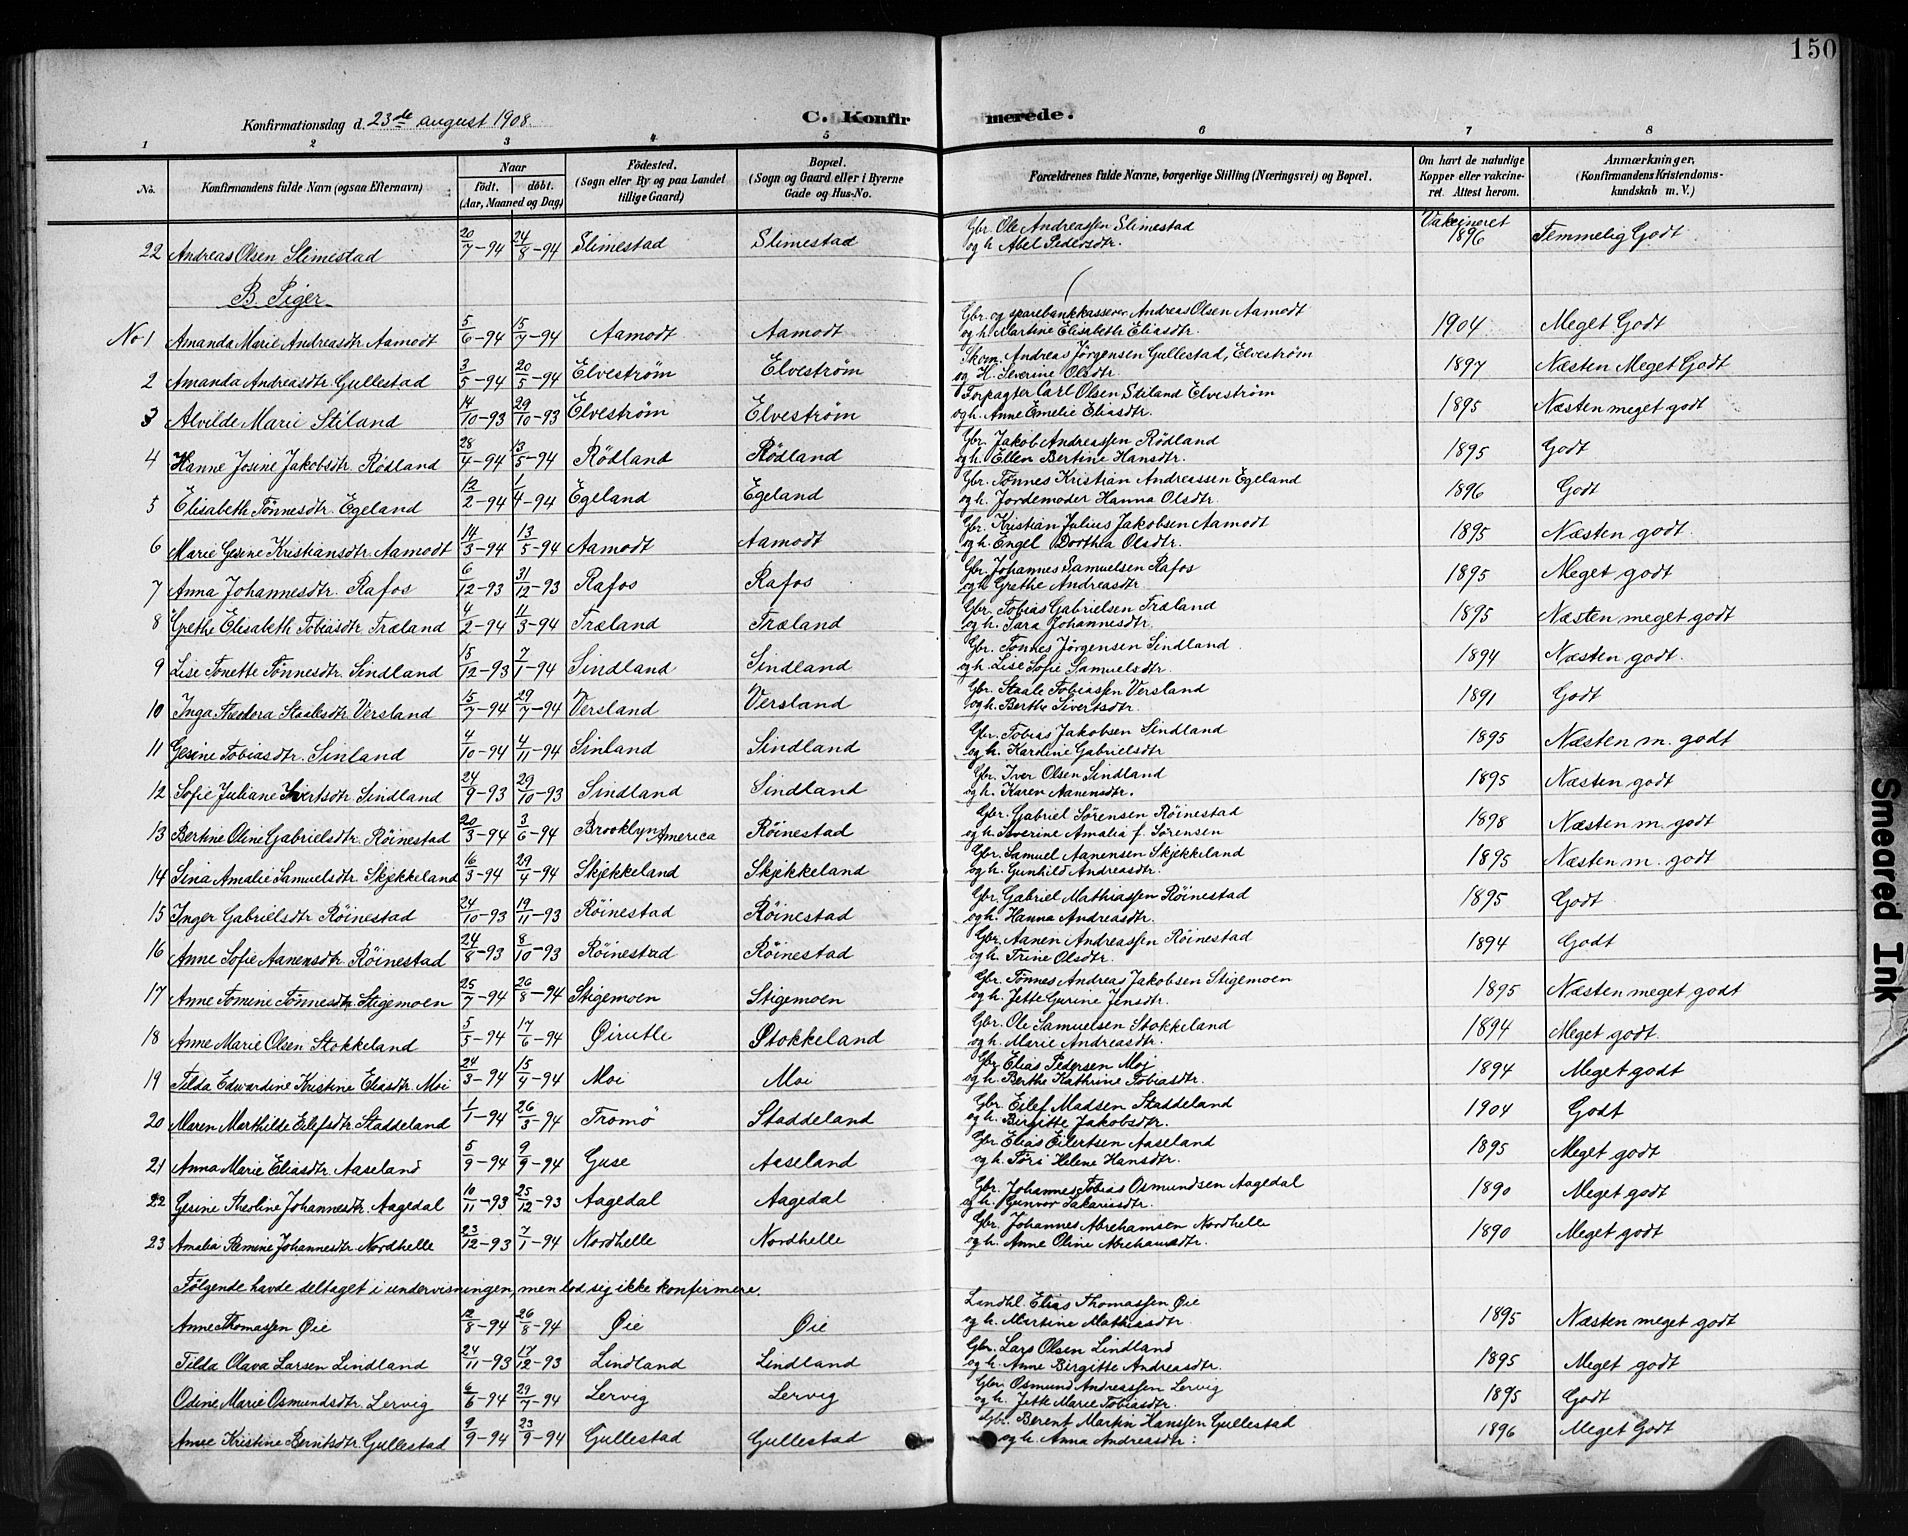 150
Konfirmationsdag d. 23de august 1908. C. Konfirmerede.
1 2 3 4 5 6 7 8
No. Konfirmandens fulde Navn (ogsaa Efternavn) Naar født. døbt. (Aar, Maaned og Dag) Fødested. (Sogn eller By og paa Landet tillige Gaard) Bopæl. (Sogn og Gaard eller i Byerne Gade og Hus-No. Forældrenes fulde Navne, borgerlige Stilling (Næringsvei) og Bopæl. Om havt de naturlige Kopper eller vakcineret. Attest herom. Anmærkninger, (Konfirmandens Kristendomskundskab m. V.)
22 Andreas Olsen Slimestad 20/7-94 24/8-94 Slimestad Slimestad Gbr. Ole Andreassen Slimestad og h. Abel Pedersdtr. Vakcineret 1896 Temmelig Godt
B. Piger
No 1 Amanda Marie Andreasdtr. Aamodt 5/6-94 15/7-94 Aamodt Aamodt Gbr. og sparebankkasserer Andreas Olsen Aamodt og h. Martine Elisabeth Eliasdtr. 1904 Meget Godt
2 Amanda Andreasdtr. Gullestad 3/5-94 20/5-94 Elvestrøm Elvestrøm Skom. Andreas Jørgensen Gullestad, Elvestrøm og H. Severine Olsdtr. 1897 Næsten Meget Godt
3 Alvilde Marie Stiland 14/10-93 29/10-93 Elvestrøm Elvestrøm Forpagter Carl Olsen Stiland Elvestrøm og h. Anne Emelie Eliasdtr. 1895 Næsten meget godt
4 Hanne Josine Jakobsdtr. Rødland 28/4-94 13/5-94 Rødland Rødland Gbr. Jakob Andreassen Rødland og h. Ellen Bertine Hansdtr. 1895 Godt
5 Elisabeth Tønnesdtr. Egeland 12/2-94 1/4-94 Egeland Egeland Gbr. Tønnes Kristian Andreassen Egeland og h. Jordemoder Hanna Olsdtr. 1896 Godt
6 Marie Gesine Kristiansdtr. Aamodt 14/3-94 13/5-94 Aamodt Aamodt Gbr. Kristian Julius Jakobsen Aamodt og h. Engel Dorthea Olsdtr. 1895 Næsten godt.
7 Anna Johannesdtr. Rafos 6/12-93 31/12-93 Rafos Rafos Gbr. Johannes Samuelsen Rafos og h. Grethe Andreasdtr. 1895 Meget godt
8 Grethe Elisabeth Tobiasdtr. Træland 4/2-94 11/3-94 Træland Træland Gbr. Tobias Gabrielsen Træland og h. Sara Johannesdtr. 1895 Næsten meget godt
9 Lise Tonette Tønnesdtr. Sindland 15/12-93 7/1-94 Sindland Sindland Gbr. Tønnes Jørgensen Sindland og h. Lise Sofie Samuelsdtr. 1894 Næsten godt.
10 Inga Theodora Staalesdtr. Versland 15/7-94 29/7-94 Versland Versland Gbr. Staale Tobiassen Versland og h. Berthe Sivertsdtr. 1891 Godt
11 Gesine Tobiasdtr. Sinland 4/10-94 4/11-94 Sinland Sindland Gbr. Tobias Jakobsen Sindland og h. Karoline Gabrielsdtr 1895 Næsten m. godt
12 Sofie Juliane Ivertsdtr. Sindland 24/9-93 29/10-93 Sindland Sindland Gbr. Iver Olsen Sindland og h. Karen Aanensdtr. 1895 Næsten godt
13 Bertine Oline Gabrielsdtr. Røinestad 20/3-94 3/6-94 Brooklyn America Røinestad Gbr. Gabriel Sørensen Røinestad og h. Severine Amalia f. Sørensen 1898 Næsten m. godt
14 Sina Amalie Samuelsdtr. Skjekkeland 16/3-94 29/4-94 Skjekkeland Skjekkeland Gbr. Samuel Aanensen Skjekkeland og h. Gunhild Andreasdtr. 1895 Næsten m. godt
15 Inger Gabrielsdtr Røinestad 24/10-93 19/11-93 Røinestad Røinestad Gbr. Gabriel Mathiassen Røinestad og h. Hanna Andreasdtr. 1895 Godt
16 Anne Sofie Aanensdtr. Røinestad 24/8-93 8/10-93 Røinestad Røinestad Gbr. Aanen Andreassen Røinestad og h. Trine Olsdtr. 1894 Godt
17 Anne Tomine Tønnesdtr. Stigemoen 25/7-94 26/8-94 Stigemoen Stigemoen Gbr. Tønnes Andreas Jakobsen Stigemoen og h. Jette Gurine Jensdtr. 1895 Næsten meget godt
18 Anne Marie Olsen Stokkeland 5/5-94 17/6-94 Øirutle Stokkeland Gbr. Ole Samuelsen Stokkeland og h. Marie Andreasdtr. 1894 Meget godt.
19 Tilda Edvardine Kristine Eliasdtr. Moi 24/3-94 15/4-94 Moi Moi Gbr. Elias Pedersen Moi og h. Berthe Kathrine Tobiasdtr. 1894 Meget godt
20 Maren Marthilde Eilefsdtr. Staddeland 1/1-94 26/3-94 Tromø Staddeland Gbr. Eilef Madsen Staddeland og h. Birgitte Jakobsdtr. 1904 Godt
21 Anna Marie Eliasdtr. Aaseland 5/9-94 9/9-94 Guse Aaseland Gbr. Elias Eilertsen Aaseland og h. Tøri Helene Hansdtr. 1895 Meget godt
22 Gesine Theoline Johannesdtr. Aagedal 10/11-93 25/12-93 Aagedal Aagedal Gbr. Johannes Tobias Osmundsen Aagedal og h. Gunvor Sakariasdtr. 1890 Meget godt
23 Amalia Johannesdtr. Nordhelle 23/12-93 7/1-94 Nordhelle Nordhelle Gbr. Johannes Abrehamsen Nordhelle og h. Anne Oline Abrehamsdtr. 1890 Meget godt
Følgende havde deltaget i undervisningen, men lod sig ikke konfirmere.
Anne Thomassen Øie 12/8-94 26/8-94 Øie Øie Landhl. Elias Thomassen Øie og h. Martine Mathiasdtr. 1895 Næsten meget godt
Tilda Olava Larsen Lindland 24/11-93 17/12-93 Lindland Lindland Gbr. Lars Olsen Lindland og h. Anne Birgitte Andreasdtr. 1895 Meget godt
Odine Marie Osmundsdtr. Lervig 6/6-94 29/7-94 Lervig Lervig Gbr. Osmund Andreassen Lervig og h. Jette Marie Tobiasdtr. 1895 Godt
Anne Kristine Berntsdtr. Gullestad 9/9-94 23/9-94 Gullestad Gullestad Gbr. Berent Martin Hanssen Gullestad og h. Anna Andreasdtr. 1896 Meget Godt
Smeared Ink